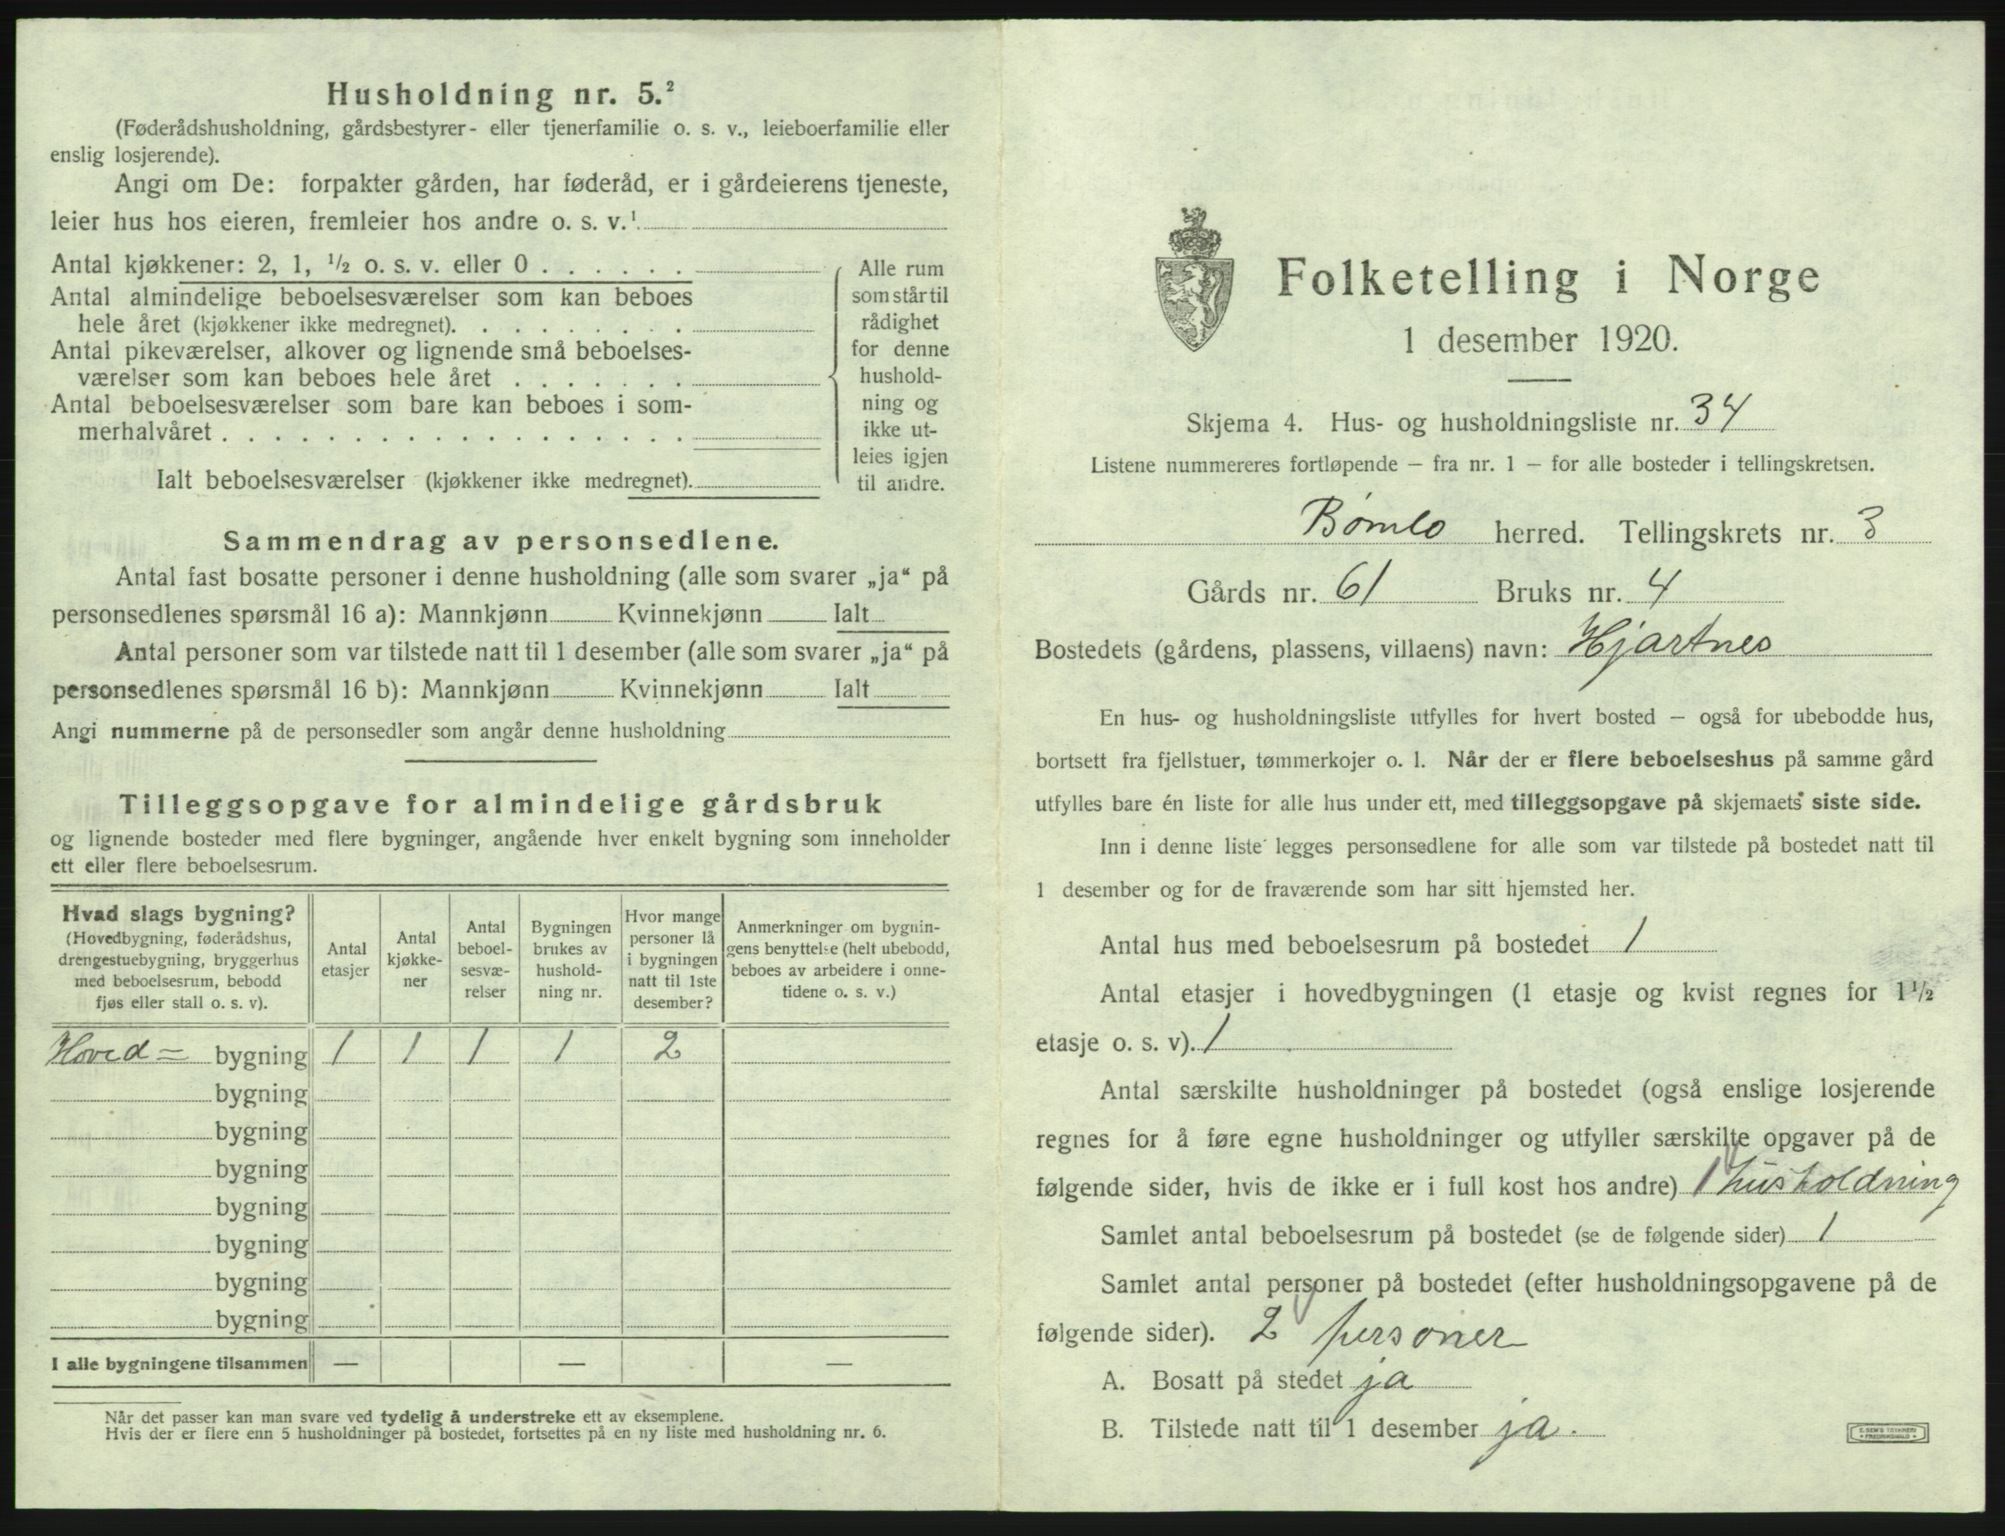 Husholdning nr. 5.²
(Føderådshusholdning, gårdsbestyrer- eller tjenerfamilie o. s. v., leieboerfamilie eller
enslig losjerende).
Angi om De: forpakter gården, har føderåd, er i gårdeierens tjeneste,
leier hus hos eieren, fremleier hos andre o. s. v.¹
Antal kjøkkener: 2, 1, ½ o. s. v. eller 0 . . . . . .
Antal almindelige beboelsesværelser som kan beboes
hele året (kjøkkener ikke medregnet). . . . . . . . .
Antal pikeværelser, alkover og lignende små beboelses-
værelser som kan beboes hele året . . . . . . .
Antal beboelsesværelser som bare kan beboes i som-
merhalvåret . . . . . . . . . . . . . . . . . .
Ialt beboelsesværelser (kjøkkener ikke medregnet).
Alle rum
som står til
rådighet
for denne
hushold-
ning og
ikke ut-
leies igjen
til andre.
Sammendrag av personsedlene.
Antal fast bosatte personer i denne husholdning (alle som svarer „ja“ på
personsedlenes spørsmål 16 a): Mannkjønn Kvinnekjønn Ialt
Antal personer som var tilstede natt til 1 desember (alle som svarer „ja“ på
personsedlenes spørsmål 16 b): Mannkjønn Kvinnekjønn Ialt
Angi nummerne på de personsedler som angår denne husholdning
Tilleggsopgave for almindelige gårdsbruk
og lignende bosteder med flere bygninger, angående hver enkelt bygning som inneholder
ett eller flere beboelsesrum.
Hvad slags bygning?
(Hovedbygning, føderådshus,
drengestuebygning, bryggerhus
med beboelsesrum, bebodd
fjøs eller stall o. s. v).
Antal
etasjer
Antal
kjøkke-
ner
Antal
beboel-
sesvæ-
relser
Bygningen
brukes av
hushold-
ning nr.
Hvor mange
personer lå
i bygningen
natt til 1ste
desember?
Anmerkninger om bygnin-
gens benyttelse (helt ubebodd,
beboes av arbeidere i onne-
tidene o. s. v.)
Hoved= bygning 1 1 1 1 2
bygning
bygning
bygning
bygning
bygning
bygning
bygning
I alle bygningene tilsammen — — —
Når det passer kan man svare ved tydelig å understreke ett av eksemplene.
Hvis der er flere enn 5 husholdninger på bostedet, fortsettes på en ny liste med husholdning nr. 6.
Folketelling i Norge
1 desember 1920.
Skjema 4. Hus- og husholdningsliste nr. 34
Listene nummereres fortløpende – fra nr. 1 – for alle bosteder i tellingskretsen.
Bømlo herred. Tellingskrets nr. 3
Gårds nr. 61 Bruks nr. 4
Bostedets (gårdens, plassens, villaens) navn: Hjartnes
En hus- og husholdningsliste utfylles for hvert bosted – også for ubebodde hus,
bortsett fra fjellstuer, tømmerkojer o. l. Når der er flere beboelseshus på samme gård
utfylles bare én liste for alle hus under ett, med tilleggsopgave på skjemaets siste side.
Inn i denne liste legges personsedlene for alle som var tilstede på bostedet natt til
1 desember og for de fraværende som har sitt hjemsted her.
Antal hus med beboelsesrum på bostedet 1
Antal etasjer i hovedbygningen (1 etasje og kvist regnes for 1½
etasje o. s. v). 1
Antal særskilte husholdninger på bostedet (også enslige losjerende
regnes for å føre egne husholdninger og utfyller særskilte opgaver på de
følgende sider, hvis de ikke er i full kost hos andre) 1 husholdning
Samlet antal beboelsesrum på bostedet (se de følgende sider) 1
Samlet antal personer på bostedet (efter husholdningsopgavene på de
følgende sider). 2 personer
A. Bosatt på stedet ja
B. Tilstede natt til 1 desember ja.